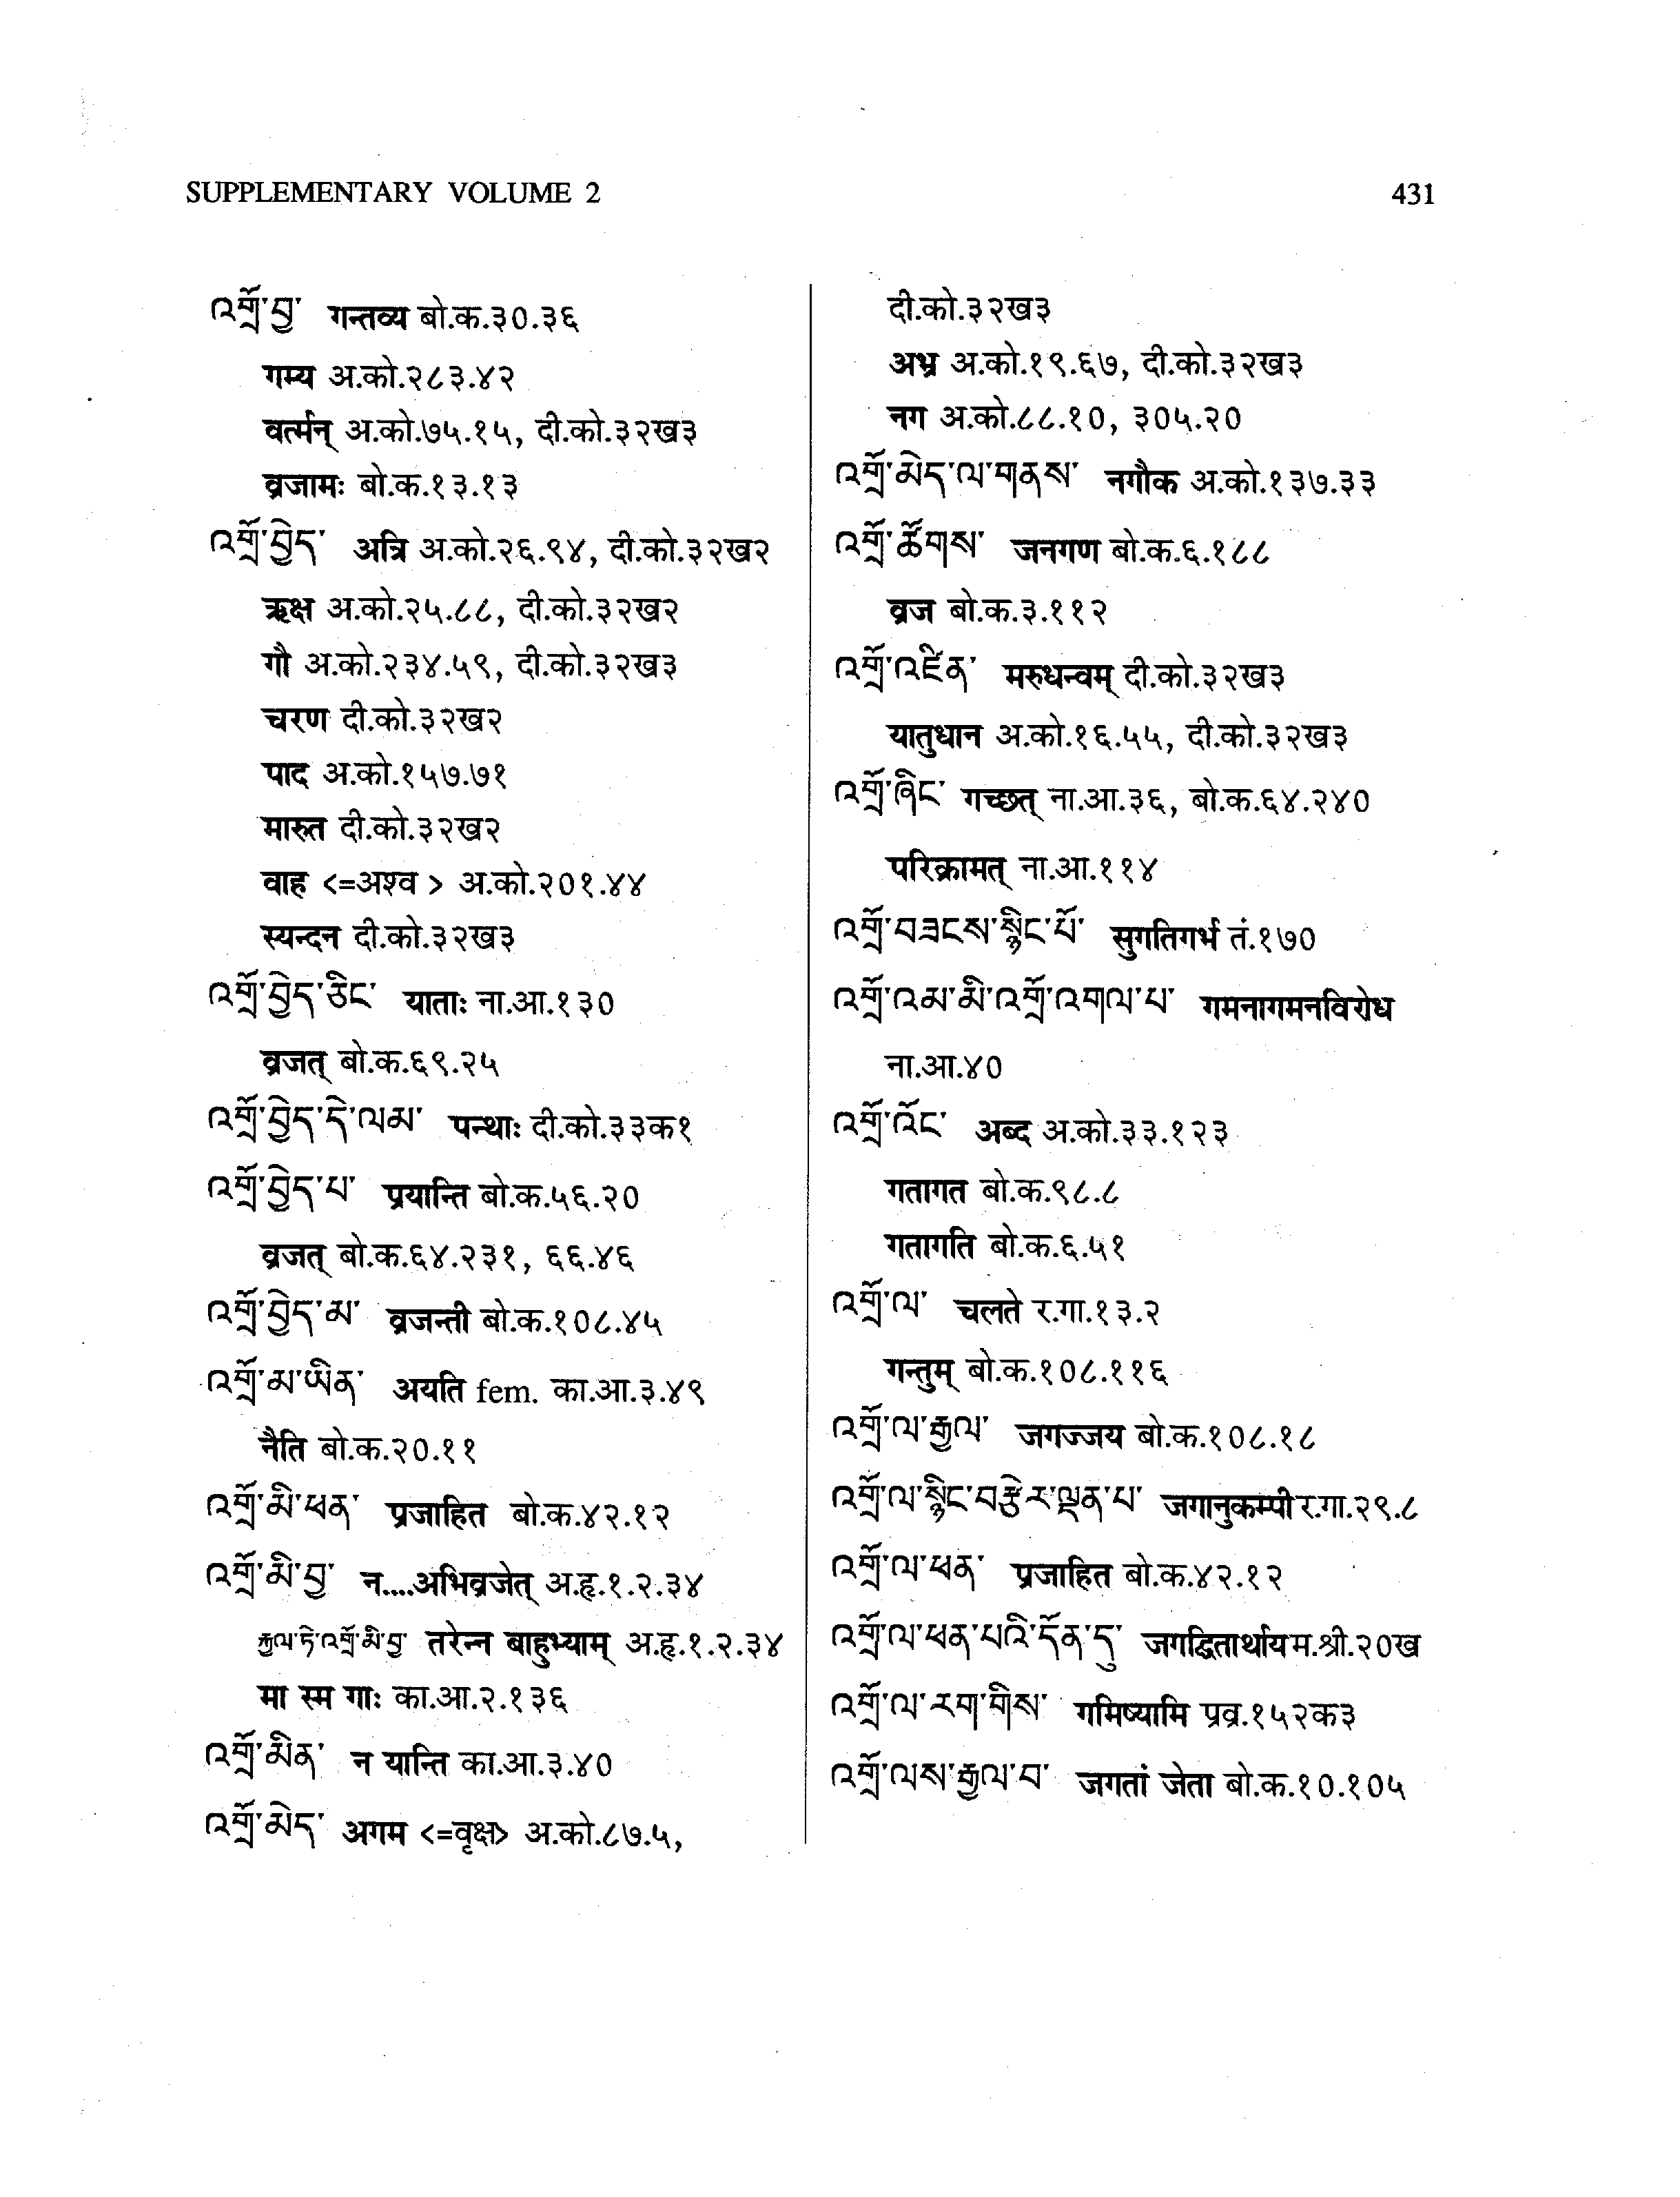 SUPPLEMENTARY VOLUME 2 431
འགྲོ་བྱ་ गन्तव्य बो.क.३०.३६
गम्य अ.को.२८३.४२
वर्त्मन् अ.को.७५.१५, दी.को.३२ख३
व्रजामः बो.क.१३.१३
འགྲོ་བྱེད་ अत्रि अ.को.२६.९४, दी.को.३२ख२
ऋक्ष अ.को.२५.८८, दी.को.३२ख२
गौ अ.को.२३४.५९, दी.को.३२ख३
चरण दी.को.३२ख२
पाद अ.को.१५७.७१
मारुत दी.को.३२ख२
वाह <=अश्व > अ.को.२०१.४४
स्यन्दन दी.को.३२ख३
འགྲོ་བྱེད་ཅིང་ याताः ना.आ.१३०
व्रजत् बो.क.६९.२५
འགྲོ་བྱེད་དེ་ལམ་ पन्थाः दी.को.३३क१
འགྲོ་བྱེད་པ་ प्रयान्ति बो.क.५६.२०
व्रजत् बो.क.६४.२३१, ६६.४६
འགྲོ་བྱེད་མ་ व्रजन्ती बो.क.१०८.४५
འགྲོ་མ་ཡིན་ अयति fem. का.आ.३.४९
नैति बो.क.२०.११
འགྲོ་མི་ཕན་ प्रजाहित बो.क.४२.१२
འགྲོ་མི་བྱ་ न....अभिव्रजेत् अ.हृ.१.२.३४
རྐྱལ་ཏེ་འགྲོ་མི་བྱ་ तरेन्न बाहुभ्याम् अ.हृ.१.२.३४
मा स्म गाः का.आ.२.१३६
འགྲོ་མིན་ न यान्ति का.आ.३.४०
འགྲོ་མེད་ अगम <=वृक्ष> अ.को.८७.५,
दी.को.३२ख३
अभ्र अ.को.१९.६७, दी.को.३२ख३
नग अ.को.८८.१०, ३०५.२०
འགྲོ་མེད་ལ་གནས་ नगौक अ.को.१३७.३३
འགྲོ་ཚོགས་ जनगण बो.क.६.१८८
व्रज बो.क.३.११२
འགྲོ་འཛིན་ मरुधन्वम् दी.को.३२ख३
यातुधान अ.को.१६.५५, दी.को.३२ख३
འགྲོ་ཞིང་ गच्छत् ना.आ.३६, बो.क.६४.२४०
परिक्रामत् ना.आ.११४
འགྲོ་བཟངས་སྙིང་པོ་ सुगतिगर्भ तं.१७०
འགྲོ་འམ་མི་འགྲོ་འགལ་པ་ गमनागमनविरोध
ना.आ.४०
འགྲོ་འོང་ अब्द अ.को.३३.१२३
गतागत बो.क.९८.८
गतागति बो.क.६.५१
འགྲོ་ལ་ चलते र.गा.१३.२
गन्तुम् बो.क.१०८.११६
འགྲོ་ལ་རྒྱལ་ जगज्जय बो.क.१०८.१८
འགྲོ་ལ་སྙིང་བརྩེར་ལྡན་པ་ जगानुकम्पी र.गा.२९.८
འགྲོ་ལ་ཕན་ प्रजाहित बो.क.४२.१२
འགྲོ་ལ་ཕན་པའི་དོན་དུ་ जगद्धितार्थाय म.श्री.२०ख
འགྲོ་ལ་རག་གིས་ गमिष्यामि प्रव्र.१५२क३
འགྲོ་ལས་རྒྱལ་བ་ जगतां जेता बो.क.१०.१०५